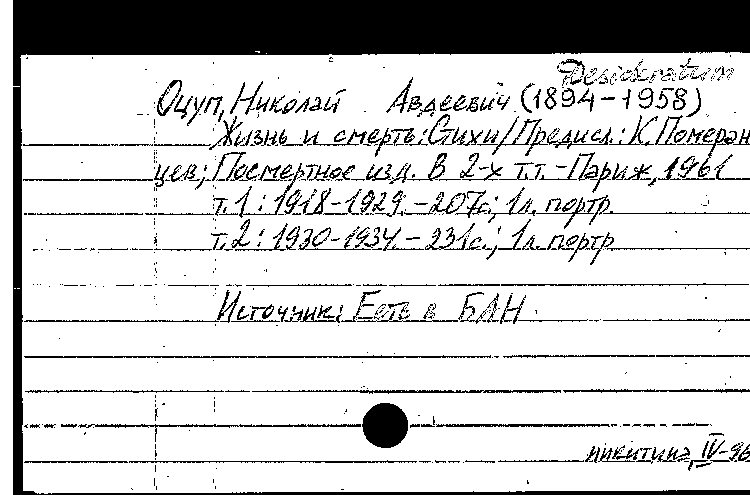 Desideratum
Оцуп, Николай Авдеевич (1894-1958)
Жизнь и смерть: Стихи/Предисл.: К. Померан
цев; Посмертное изд. В 2-х т.т. -Париж, 1961
т. 1: 1918-1929. -207с; 1л. портр.
т. 2: 1930-1934. - 231с.; 1л. портр
Источник: Есть в БАН.
никитина, IV-96